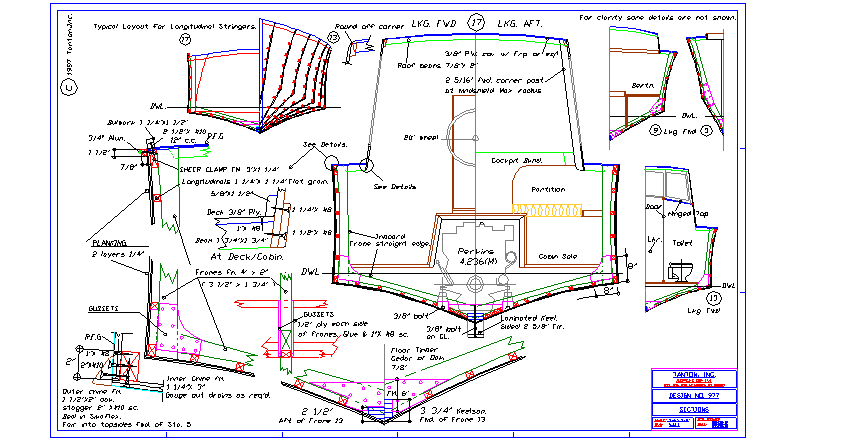 © 1997 Tanton,Inc.
Typical Layout For Longitudinal Stringers.
17
13
DWL
Round off corner
LKG. FWD
17
LKG. AFT.
For clarity some details are not shown.
3/8" Ply.
Roof beams 7/8"X 2"
2 5/16" Fwd. corner post
at Windshield
radius
Bulwark 1 1/4"X1 1/2"
2 1/2"X #10
12" c.c.
3/4" Alum.
1 1/2"
7/8"
P.F.G
SHEER CLAMP FN. 3"X1 1/4"
Longitudinals 1 1/4"X 1 1/4"Flat grain.
5/8"X1 1/2"
Deck 3/8" Ply.
1 1/4"X #8
1"X #8
Beam 1 3/4"X1 3/4"
1 1/2"X #8
At Deck/Cabin.
See Details.
See Details
Cockpit Bund.
Partition
Inboard
Frame straight edge.
Perkins
4.236(M)
Cabin Sole
DWL
8"
8"
PLANKING
2 layers 1/4"
Frames Fn. 4" x 2"
( 3 1/2" x 1 3/4" )
GUSSETS
GUSSETS
1/2" ply each side
of frames. Glue & 1"X #8 sc.
3/8" bolt
3/8" bolt
on CL.
Laminated Keel.
Sided 2 5/8" Fir.
P.F.G
1"X #8
2"X#10
2"
Inner Chine Fn.
1 1/4"X 3"
Gouge out drains as req'd.
Outer chine Fn.
1 1/2"X2"
stagger 2" X#10 sc.
Fair into topsides Fwd. of Sta. 5
Floor Timber
Cedar or Oak
7/8"
6"
2 1/2"
Aft of Frame 13
3 3/4" Keelson.
Fwd. of Frame 13
DWL.
9
Lkg Fwd
Door
Hinged Top
Toilet
DWL
13
Lkg Fwd
TANTON, INC.
DESIGN NO. 977
SECTIONS